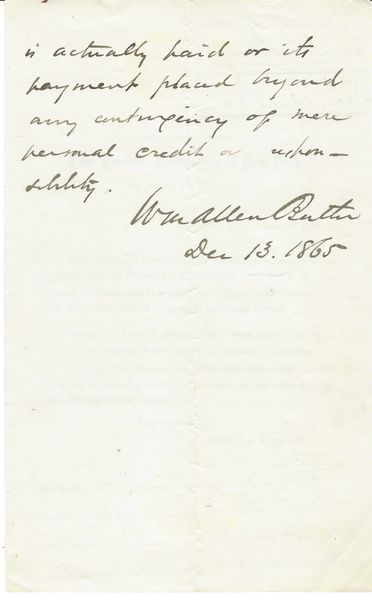 is actually paid or its
payment placed beyond
any contingency of mere
personal credit or respon-
sibility.
Wm Allen Butler
Dec 13. 1865